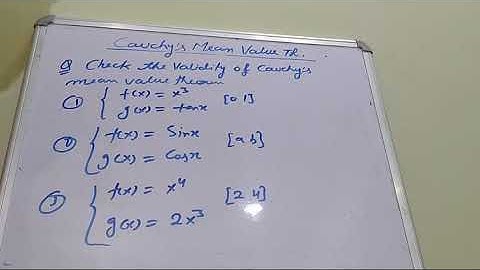 Cauchy's Mean Value Th.
Q Check the Validity of Cauchy's
mean value theorem
① { f(x) = x³
g(x) = tanx [0 1]
② { f(x) = Sinx
g(x) = Cosx [a b]
③ { f(x) = x⁴ [2 4]
g(x) = 2x³